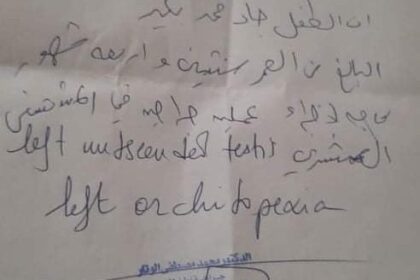 ان الطفل جاد محمد بكير
البالغ من العمر سنتين واربعه شهور
بحاجه لاجراء عمليه جراحيه في المستشفى
left undscended testis
left orchitopexia